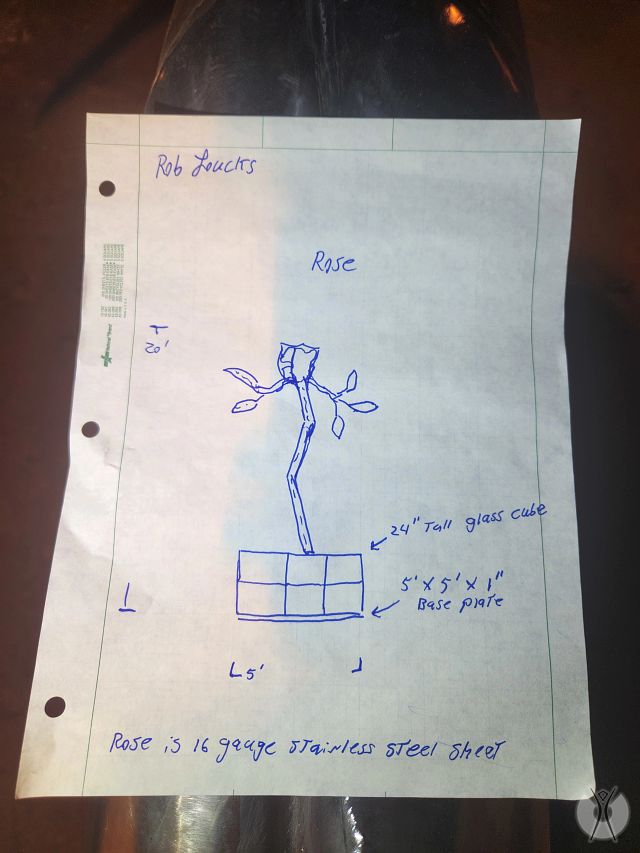 Rob Loucks
Rose
20'
24" Tall glass cube
5' x 5' x 1"
Base plate
5'
Rose is 16 gauge stainless steel sheet